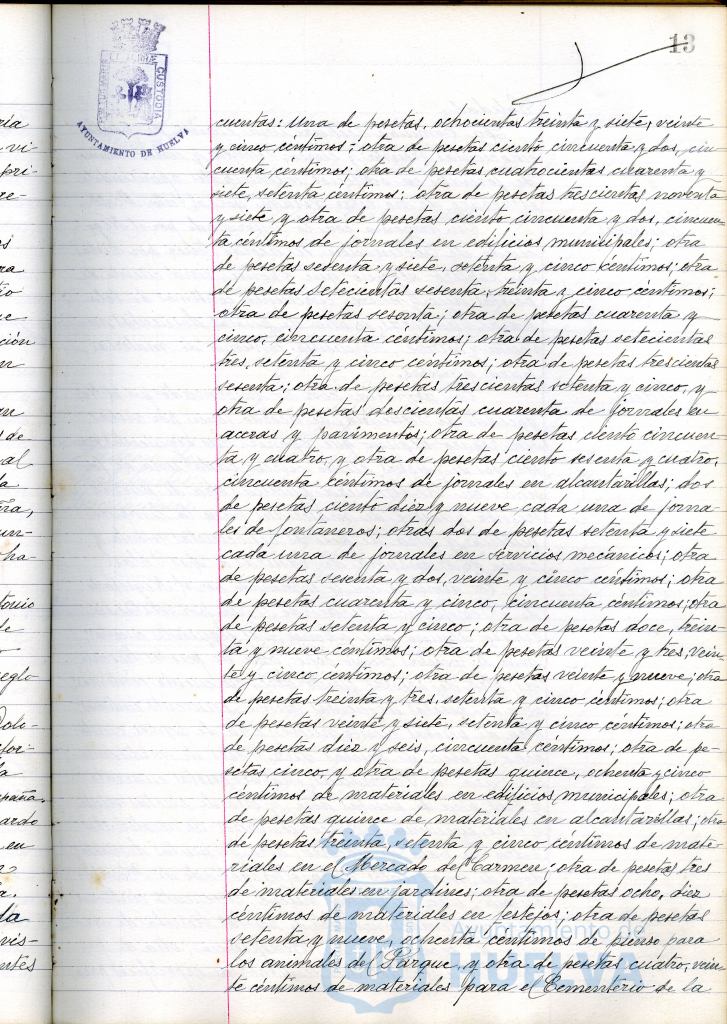 13
CUSTODIA
AYUNTAMIENTO DE HUELVA
cuentas: una de pesetas, ochocientas treinta y siete, veinte
y cinco céntimos; otra de pesetas ciento cincuenta y dos, cin
cuenta céntimos; otra de pesetas cuatrocientas cuarenta y
siete, setenta céntimos; otra de pesetas trescientas noventa
y siete y otra de pesetas ciento cincuenta y dos, cincuen-
ta céntimos de jornales en edificios municipales; otra
de pesetas sesenta y siete, setenta y cinco céntimos; otra
de pesetas setecientas sesenta, treinta y cinco céntimos;
otra de pesetas sesenta; otra de pesetas cuarenta y
cinco, cincuenta céntimos; otra de pesetas setecientas
tres, setenta y cinco céntimos; otra de pesetas trescientas
sesenta; otra de pesetas trescientas setenta y cinco, y
otra de pesetas doscientas cuarenta de jornales en
aceras y pavimentos; otra de pesetas ciento cincuen-
ta y cuatro, y otra de pesetas ciento sesenta y cuatro,
cincuenta céntimos de jornales en alcantarillas; dos
de pesetas ciento diez y nueve cada una de jorna-
les de fontaneros; otras dos de pesetas setenta y siete
cada una de jornales en servicios mecánicos; otra
de pesetas sesenta y dos, veinte y cinco céntimos; otra
de pesetas cuarenta y cinco, cincuenta céntimos; otra
de pesetas setenta y cinco; otra de pesetas doce, trein-
ta y nueve céntimos; otra de pesetas veinte y tres, vein-
te y cinco céntimos; otra de pesetas veinte y nueve; otra
de pesetas treinta y tres, setenta y cinco céntimos; otra
de pesetas veinte y siete, setenta y cinco céntimos; otra
de pesetas diez y seis, cincuenta céntimos; otra de pe-
setas cinco, y otra de pesetas quince, ochenta y cinco
céntimos de materiales en edificios municipales; otra
de pesetas quince de materiales en alcantarillas; otra
de pesetas treinta, setenta y cinco céntimos de mate-
riales en el Mercado del Carmen; otra de pesetas tres
de materiales en jardines; otra de pesetas ocho, diez
céntimos de materiales en festejos; otra de pesetas
setenta y nueve, ochenta céntimos de pienso para
los animales del Parque, y otra de pesetas cuatro, vein-
te céntimos de materiales para el Cementerio de la
Ayuntamiento de
HUELVA